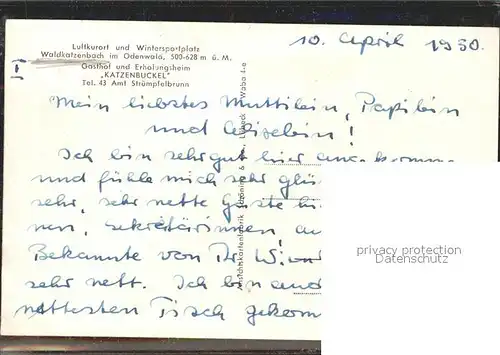 Luftkurort und Wintersportplatz
Waldkatzenbach im Odenwald, 500-628 m ü. M.
Gasthof und Erholungsheim
„KATZENBUCKEL"
Tel. 43 Amt Strümpfelbrunn
I
10. April 1950.
Mein liebstes Muttilein, Papilein
und Liselein!
Ich bin sehr gut hier angekomme
und fühle mich sehr glü
sehr, sehr nette Gäste hi
nen, Sekretärinnen au
Bekannte von Dr.
sehr nett. Ich bin
nettesten Tisch gekom
Ansichtskartenfabrik Schöning & Lübeck Waba 4-e
privacy protection
Datenschutz